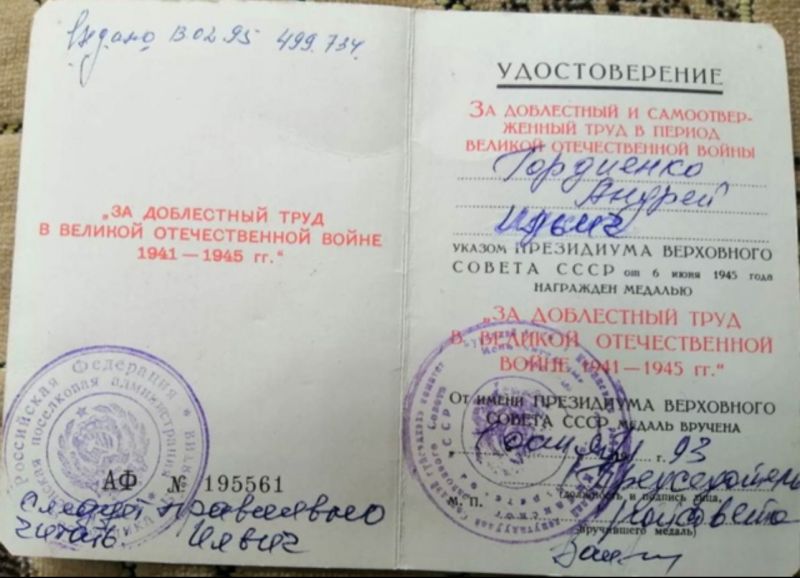 Выдано 13.02.95 499.734.
„ЗА ДОБЛЕСТНЫЙ ТРУД
В ВЕЛИКОЙ ОТЕЧЕСТВЕННОЙ ВОЙНЕ
1941 — 1945 гг.“
Российская Федерация
поселковая администрация
АФ № 195561
Следует правильно
читать. Ильич
УДОСТОВЕРЕНИЕ
ЗА ДОБЛЕСТНЫЙ И САМООТВЕР-
ЖЕННЫЙ ТРУД В ПЕРИОД
ВЕЛИКОЙ ОТЕЧЕСТВЕННОЙ ВОЙНЫ
Гордиенко
Андрей
Ильич
УКАЗОМ ПРЕЗИДИУМА ВЕРХОВНОГО
СОВЕТА СССР от 6 июня 1945 года
НАГРАЖДЕН МЕДАЛЬЮ
„ЗА ДОБЛЕСТНЫЙ ТРУД
В ВЕЛИКОЙ ОТЕЧЕСТВЕННОЙ
ВОЙНЕ 1941—1945 гг.“
От имени ПРЕЗИДИУМА ВЕРХОВНОГО
СОВЕТА СССР МЕДАЛЬ ВРУЧЕНА
93
М. П. (должность и подпись лица,
вручившего медаль)